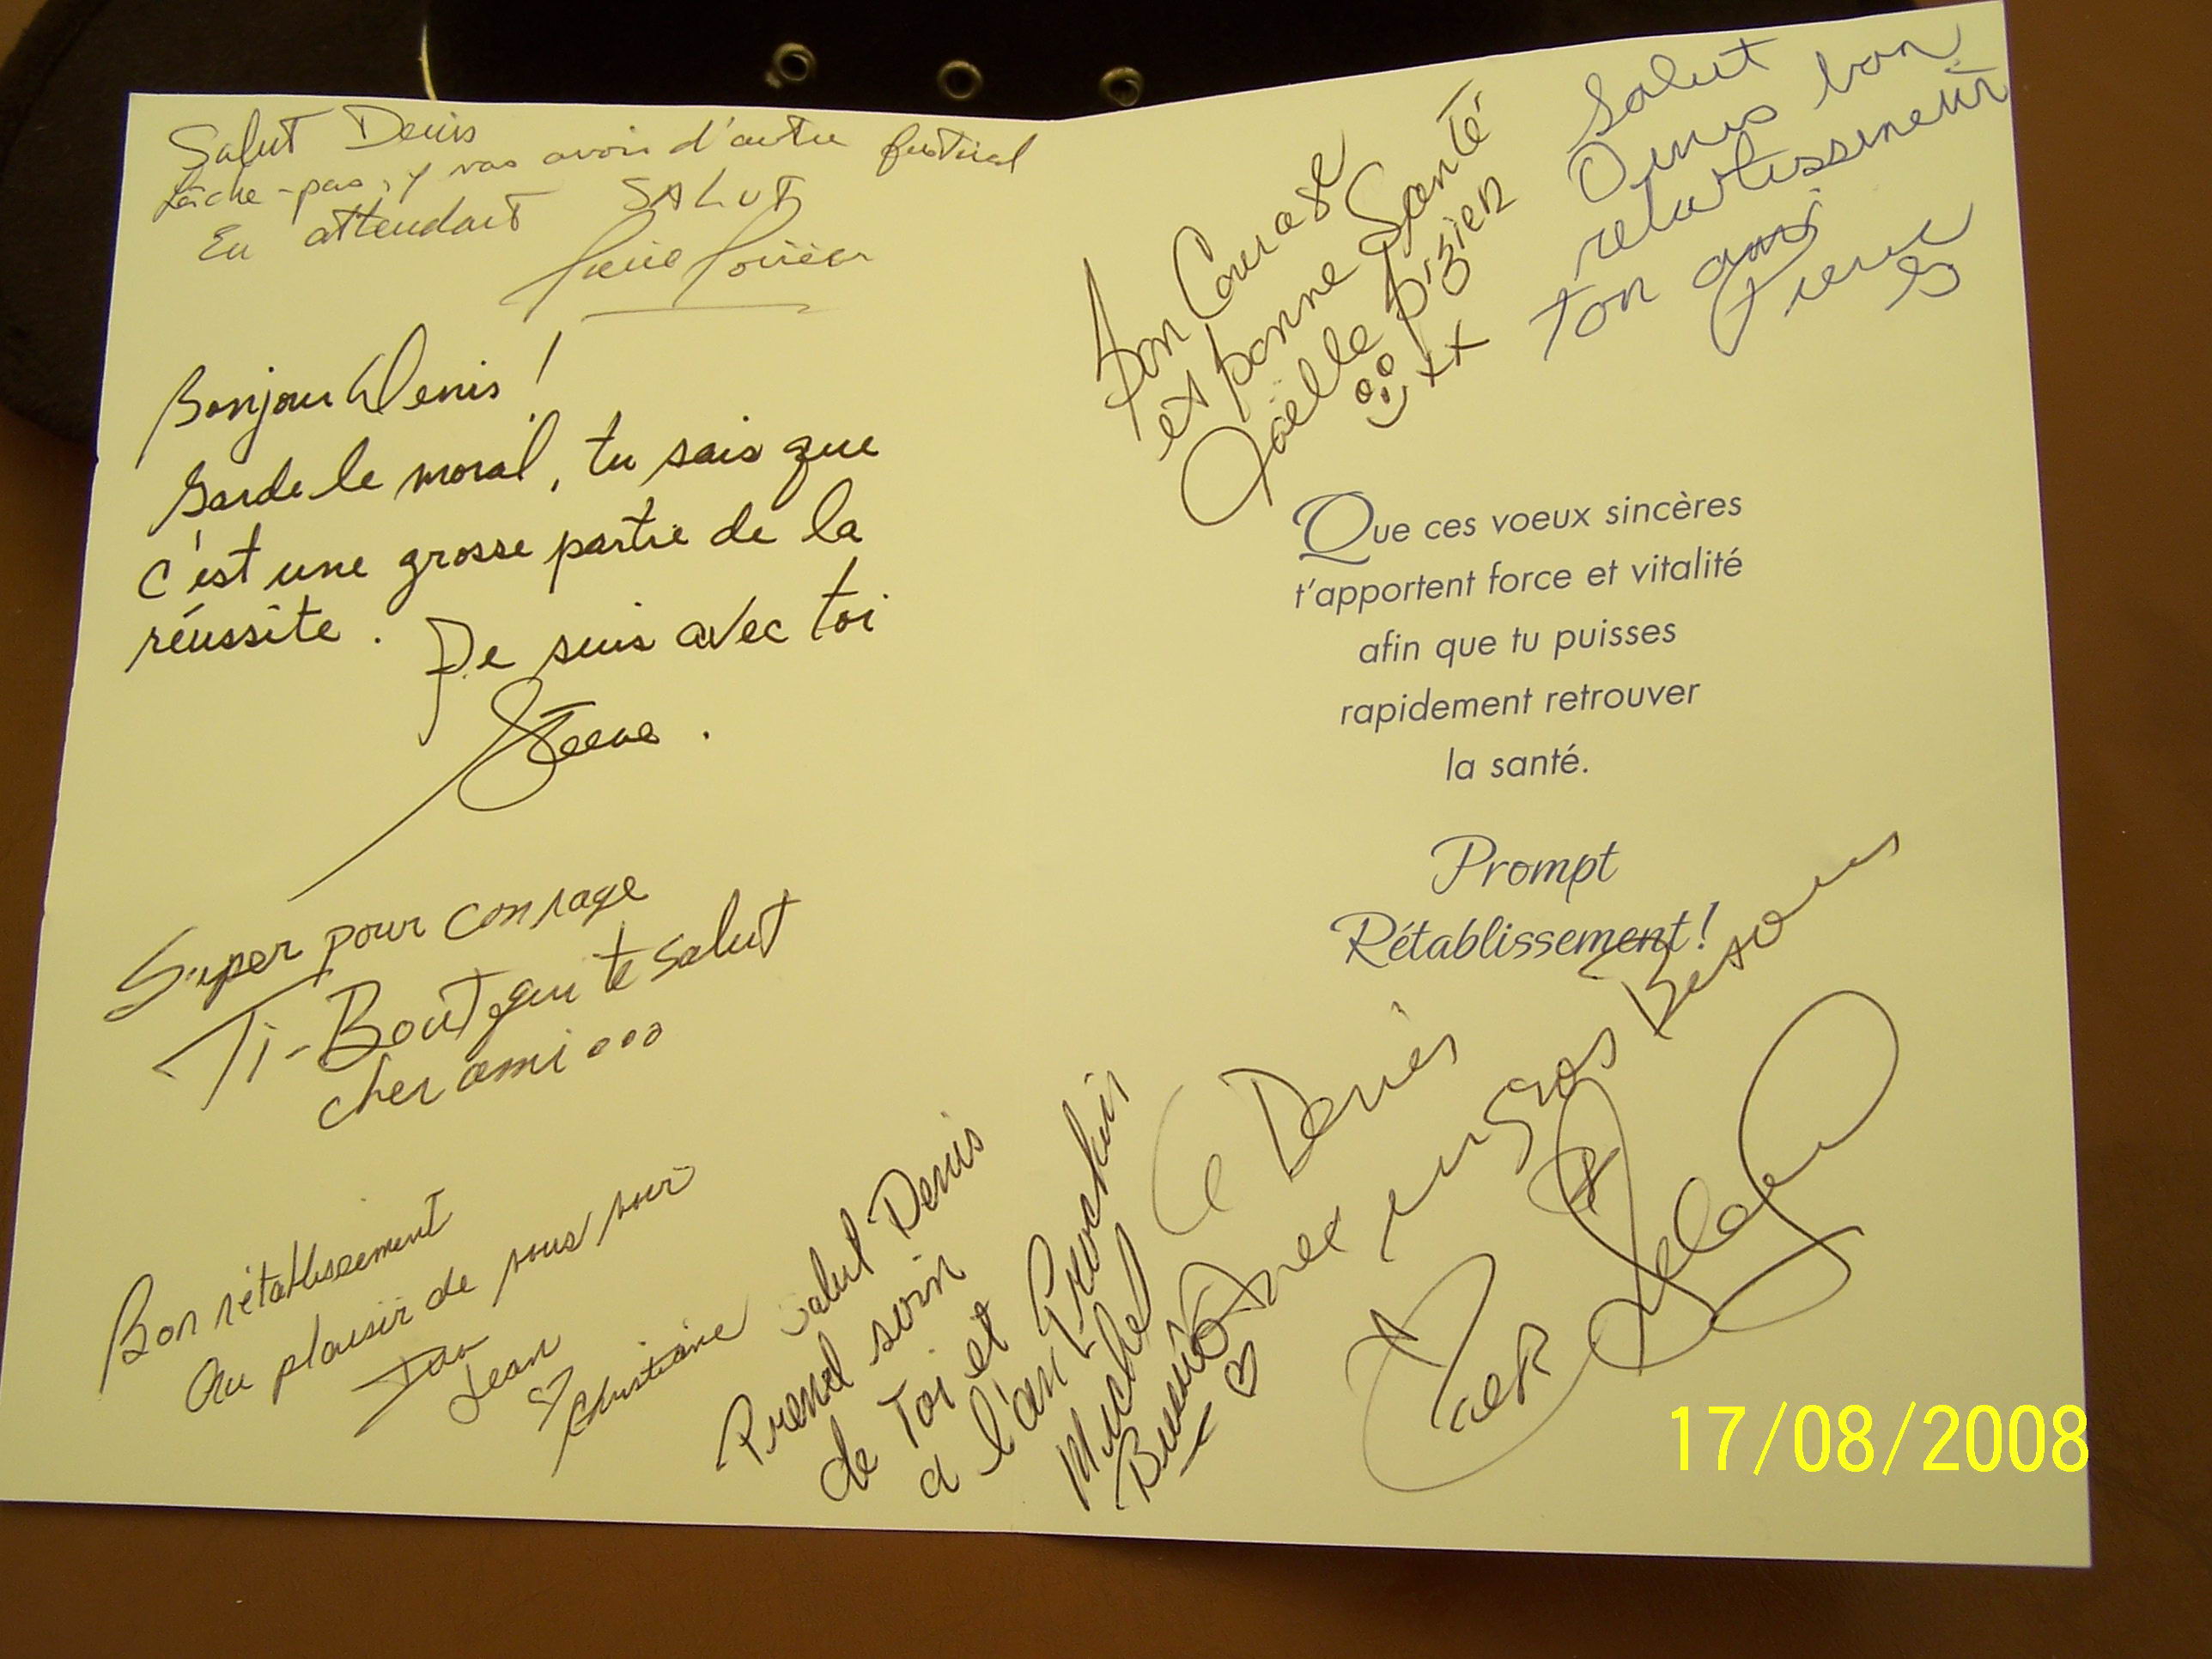 Salut Denis
Lâche-pas, y vas avoir d'autre festival
En attendant SALUT
Bonjour Denis!
Garde le moral, tu sais que
c'est une grosse partie de la
réussite.
Je suis avec toi
Steeve.
Super pour courage
Ti-Bout qui te salut
cher ami...
Bon rétablissement
Au plaisir de vous voir
Jean
Christiane
Salut Denis
Prend soin
de Toi et
a l'an Prochin
Michel
Bon Courage
et bonne Santé
Joëlle
xx
Salut
Denis bon
ton ami
Pierre
Que ces voeux sincères
t'apportent force et vitalité
afin que tu puisses
rapidement retrouver
la santé.
Prompt
Rétablissement!
a Denis
Avec un gros
17/08/2008